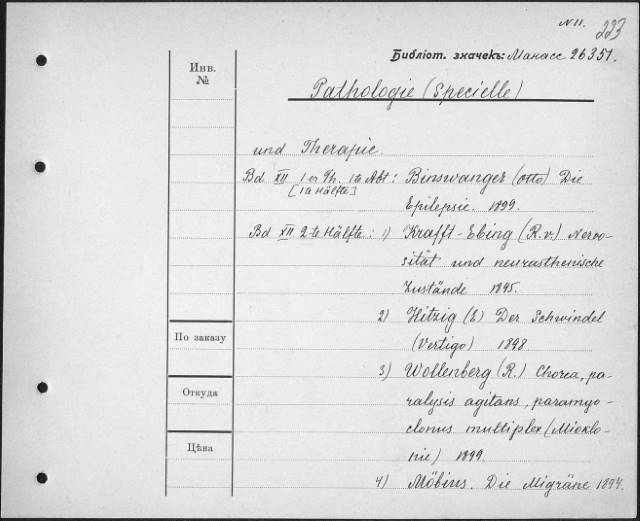 N 11. 223
Библіот. значекъ: Манасс 26351.
Инв.
№
Pathologie (Specielle)
und Therapie.
Bd XII 1er Th. 1te Abt: Binswanger (Otto) Die
[1te Hälfte]
Epilepsie. 1899.
Bd XII 2-te Hälfte: 1) Krafft-Ebing (R.v.) Nervo-
sität und neurasthenische
Zustände 1895.
2) Hitzig (E) Der Schwindel
(Vertigo) 1898
По заказу
3) Wollenberg (R.) Chorea, pa-
ralysis agitans, paramyo-
Откуда
clonus multiplex (Myoklo-
nie) 1899.
Цѣна
4) Möbius. Die Migräne 1894.